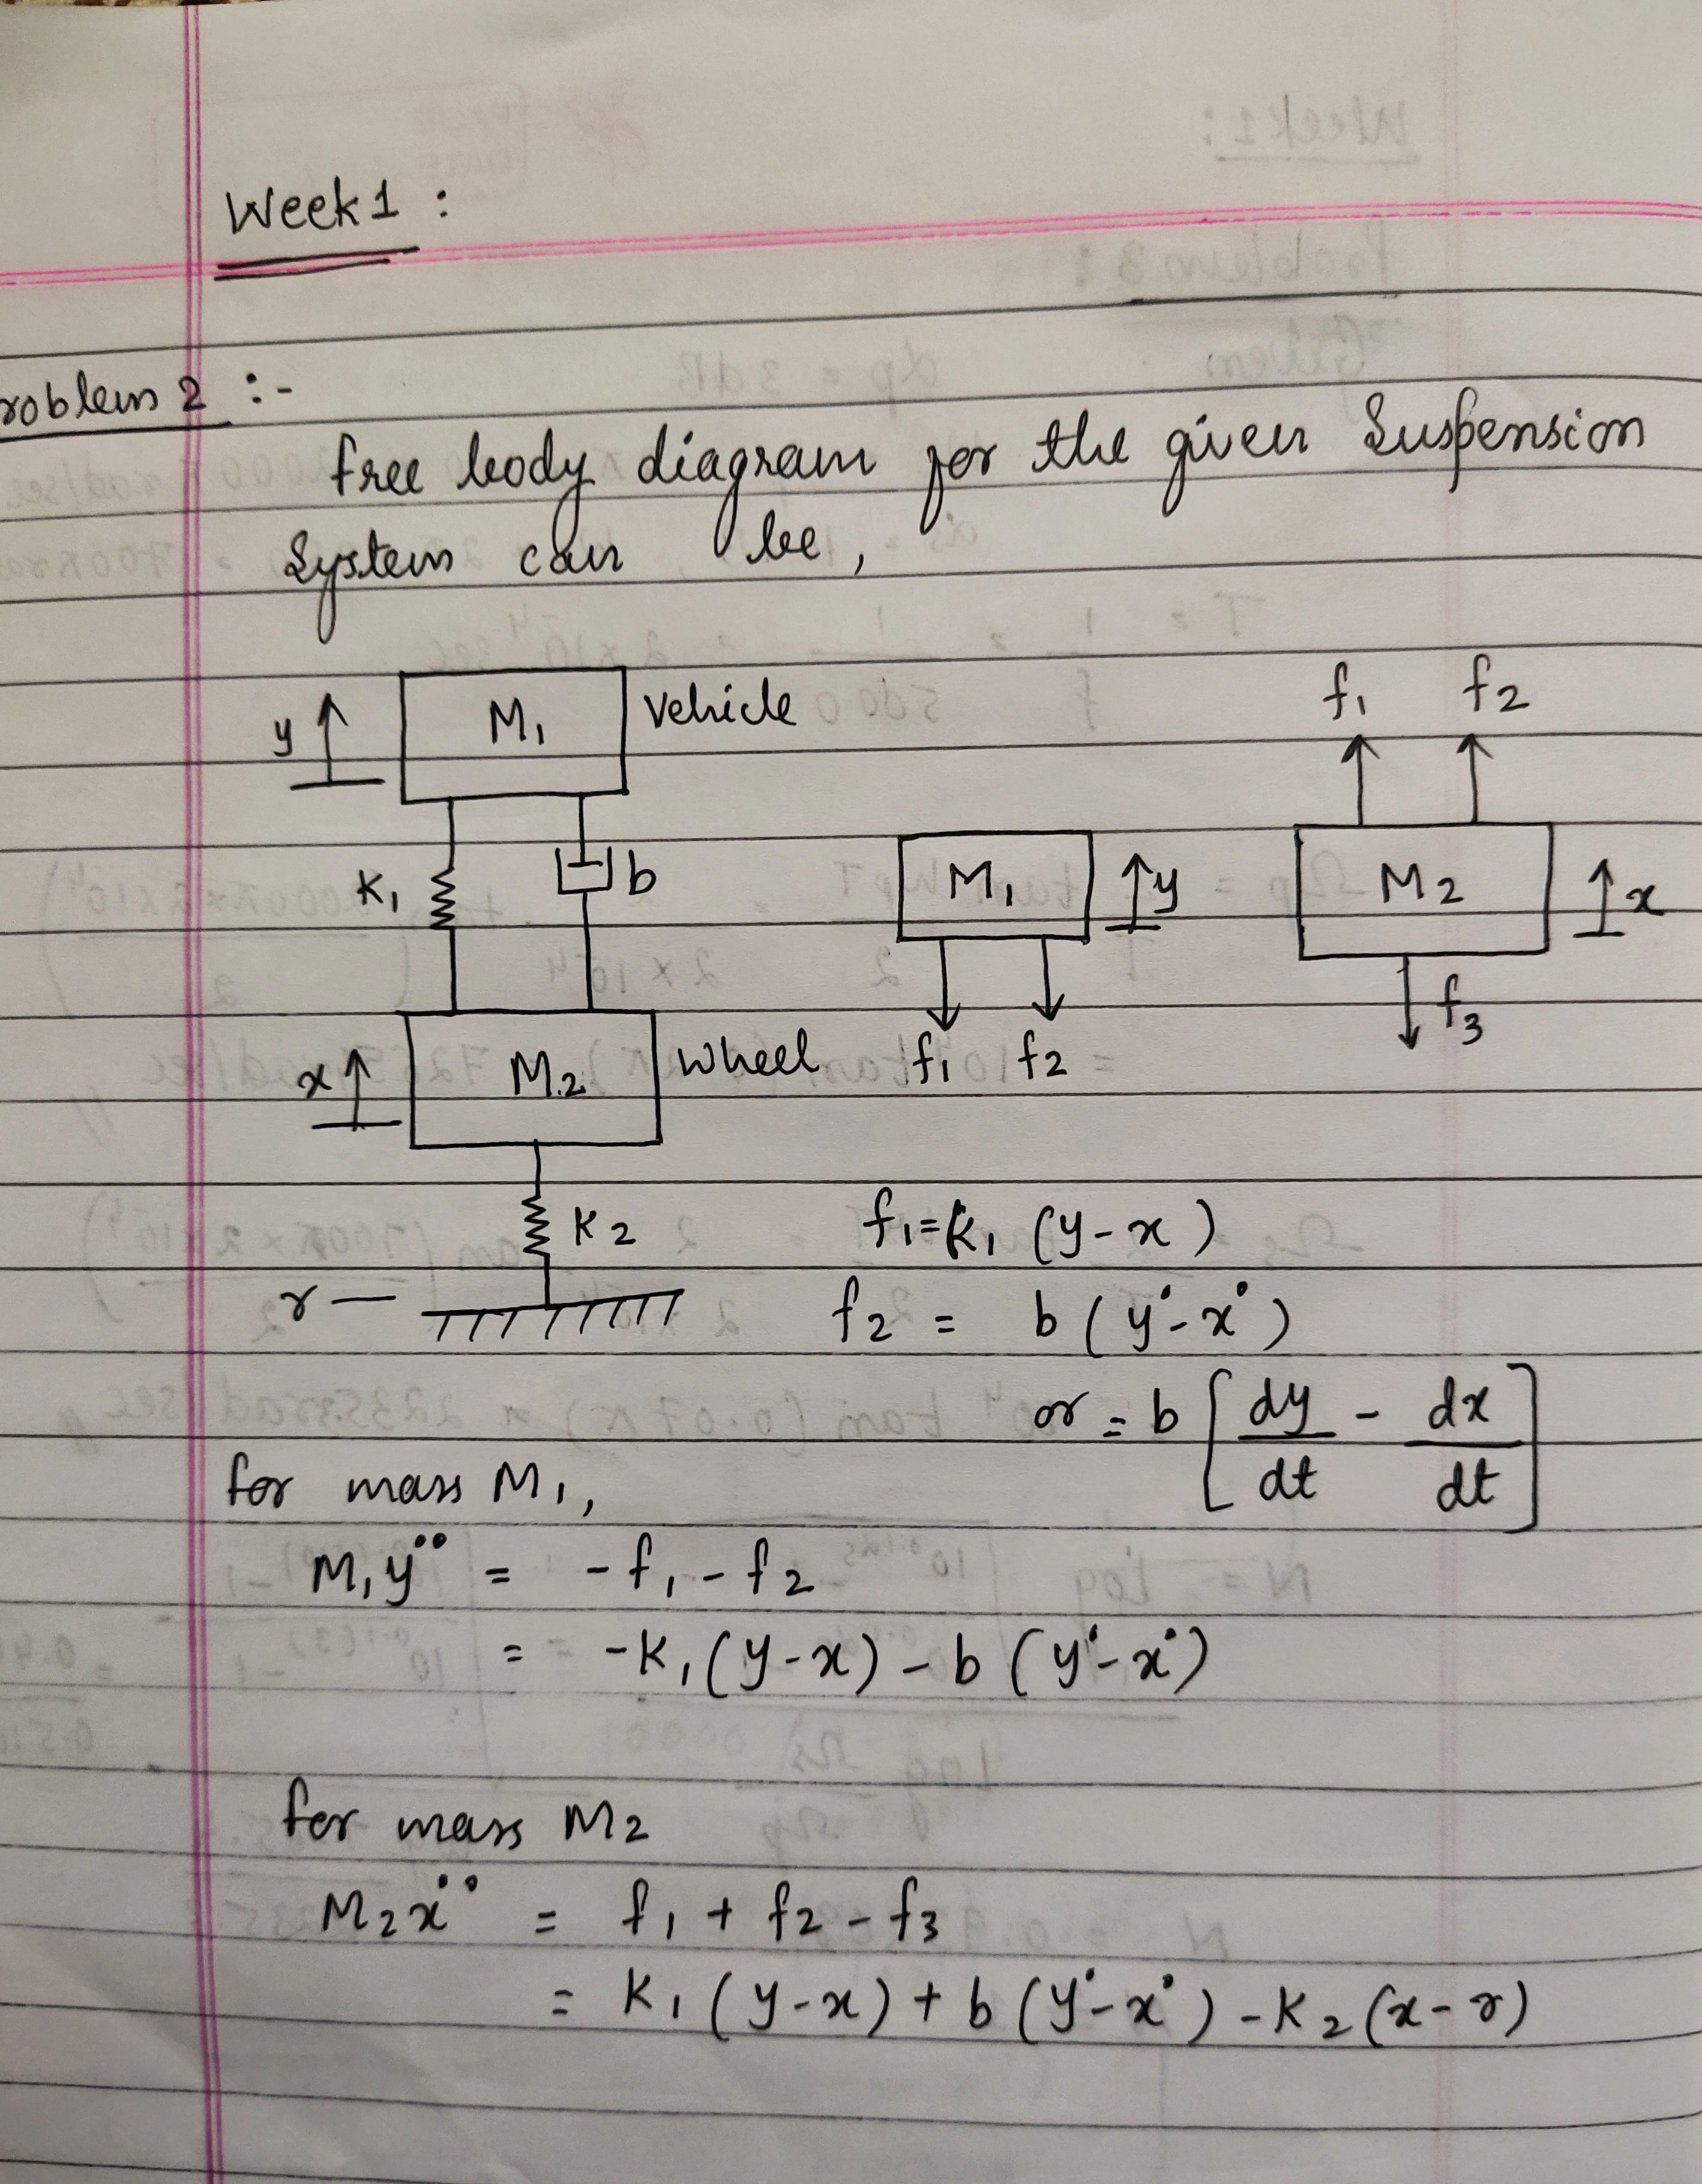 Week 1 :
roblem 2 :-
free body diagram for the given Suspension
System can be,
y M₁ Vehicle
K₁ b
x M₂ Wheel
K₂
r
M₁ y
f₁ f₂
f₁ f₂
M₂ x
f₃
f₁ = K₁ (y - x)
f₂ = b (ẏ - ẋ)
or = b [dy/dt - dx/dt]
for mass M₁,
M₁ÿ = -f₁ - f₂
= -K₁ (y - x) - b (ẏ - ẋ)
for mass M₂
M₂ẍ = f₁ + f₂ - f₃
= K₁ (y - x) + b (ẏ - ẋ) - K₂ (x - r)